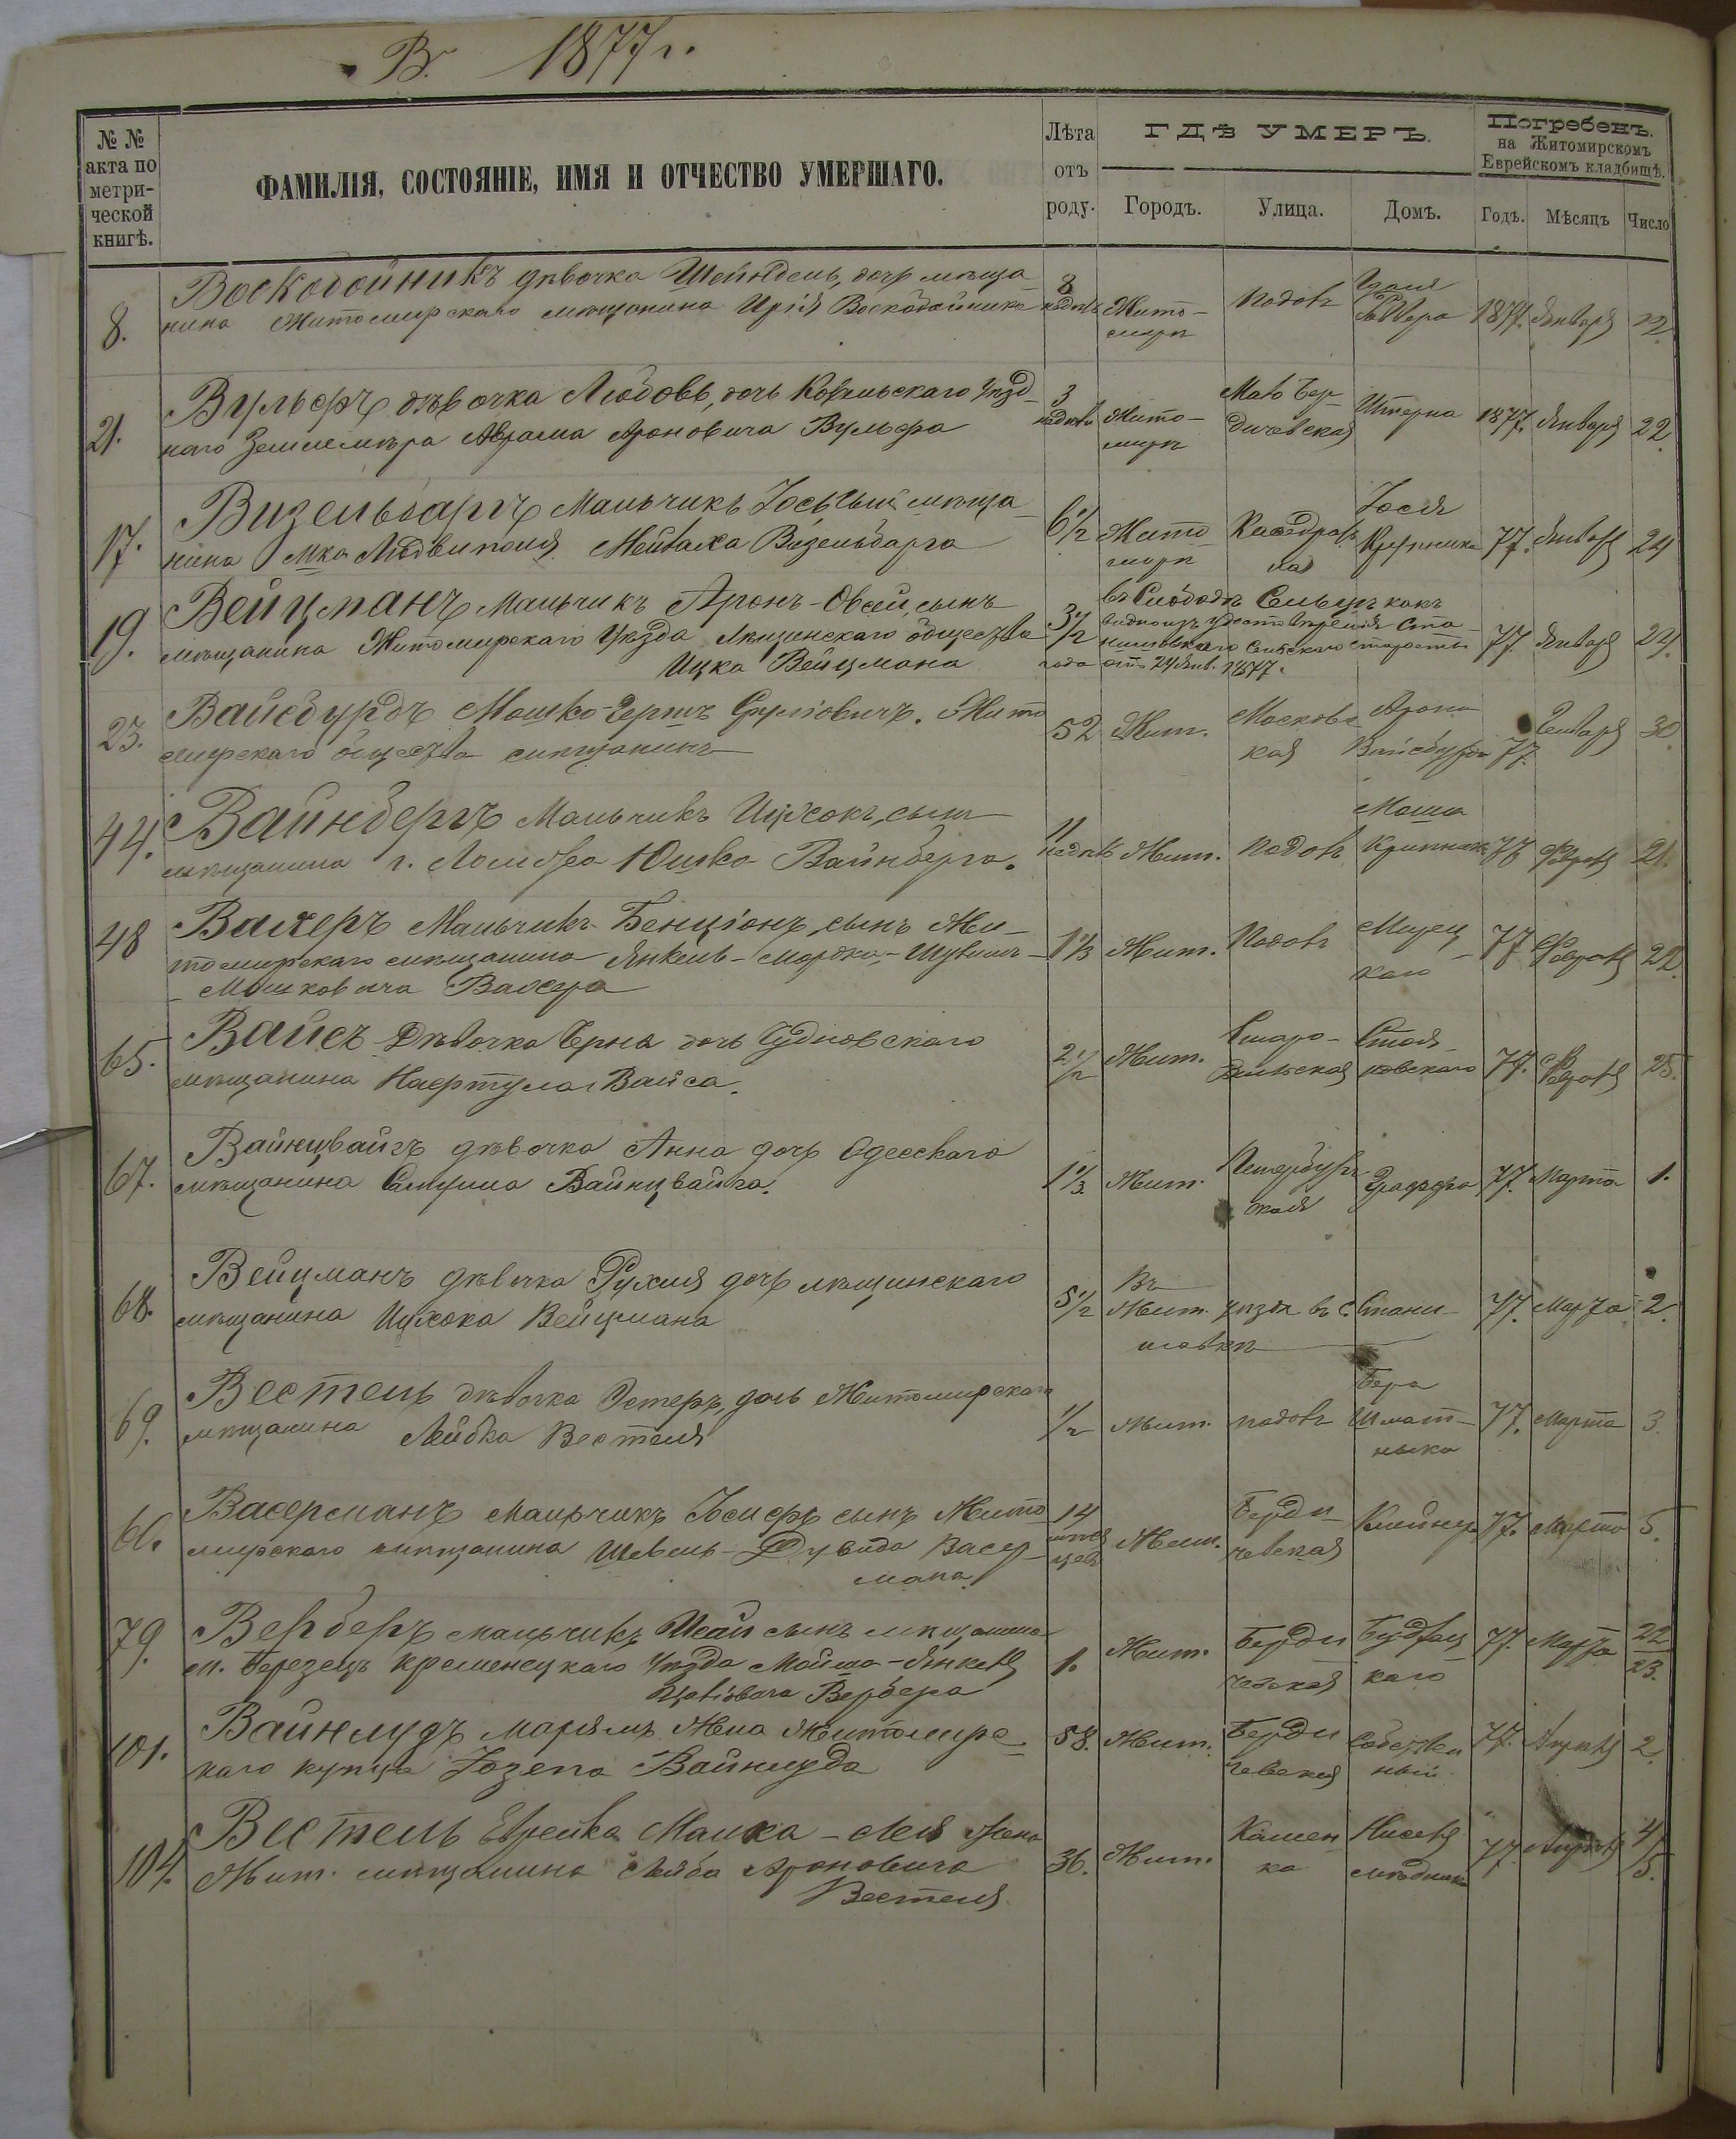 В. 1877 г.
№ №
акта по
метри-
ческой
книгѣ.
ФАМИЛІЯ, СОСТОЯНІЕ, ИМЯ И ОТЧЕСТВО УМЕРШАГО.
Лѣта
отъ
роду.
ГДѢ УМЕРЪ.
Городъ. Улица. Домъ.
Погребенъ.
на Житомирскомъ
Еврейскомъ кладбищѣ.
Годъ. Мѣсяцъ Число
8. Воскобойникъ дѣвочка Шейндель, дочь мѣща-
нина Житомирскаго мѣщанина Воскобойника
Жито-
миръ Подолъ 1877. Января 22.
21. Вульфъ дѣвочка Любовь, дочь Ковельскаго Уѣзд-
наго Землемѣра Аврама Ароновича Вульфа
3 недѣли Жито-
миръ Мало Бер-
дичевская Штерна 1877. Января 22.
17. Визельбаргъ Мальчикъ Іось сынъ мѣща-
нина Мка Людвиполя Визельбарга
6 1/2 Жито-
миръ Каѳедраль-
ная Іося 77. Января 24
19. Вейцманъ Мальчикъ Аронъ-Овсей, сынъ
мѣщанина Житомирскаго Уѣзда Лѣщинскаго общества
Ицка Вейцмана
3 1/2
года
въ Слободѣ Сельцъ какъ
видно изъ удостовѣренія Ста-
нишовскаго Сельскаго старосты
отъ 24 Янв. 1877.
77. Января 24.
23. Вайсбурдъ Мошко-Герш Сруліовичъ. Жито-
мирскаго общества мѣщанинъ
52 Жит. Московс-
кая Арона
Вайсбурда 77. Января 30.
44. Вайнбергъ Мальчикъ Ицхокъ, сынъ
мѣщанина г. Юшко Вайнберга.
11
недѣль Жит. Подолъ Мошка 77 Февраля 21.
48 Вахеръ Мальчикъ Бенціонъ, сынъ Жи-
томирскаго мѣщанина Янкель-Мордко-
Мошковича Вахера
1 1/3 Жит. Подолъ 77 Февраля 22.
65. Вайсъ Дѣвочка Черна дочь Чудновскаго
мѣщанина Нафтула Вайса.
2 1/2 Жит. Старо-
Вильская 77. Февраля 25.
67. Вайнцвайгъ дѣвочка Анна дочь Одесскаго
мѣщанина Вайнцвайга.
1 1/3. Жит. Петербург-
ская Графа 77. Марта 1.
68. Вейцманъ дѣвочка Рухля дочь лѣщинскаго
мѣщанина Ицхока Вейцмана
5 1/2 Въ
Жит. уѣздѣ въ с. Стани-
шовкѣ 77. Марта 2.
69. Вестель дѣвочка Эстеръ, дочь Житомирскаго
мѣщанина Лейбка Вестеля
1/2 Жит. Подолъ Бера 77. Марта 3.
66. Васерманъ мальчикъ Іосифъ сынъ Жито-
мирскаго мѣщанина Шевель-Дувида Васер-
мана
14
мѣся-
цевъ Жит. Берди-
чевская Клейнера 77. Марта 5.
79. Верберъ мальчикъ сынъ мѣщанина
м. Березецъ Кременецкаго Уѣзда Мойша-Янкеля
Вербера
1. Жит. Берди-
чевская 77. Марта 22/23.
101. Вайнлудъ Марьямъ Жена Житомирс-
каго купца Іозепа Вайнлуда
58. Жит. Берди-
чевская Собствен-
ный 77. Апрѣля 2.
104. Вестель Еврейка Малка-Лея Жена
Жит. мѣщанина Лейба Ароновича
Вестеля
36. Жит. Камен-
ка 77. Апрѣля 4/5.